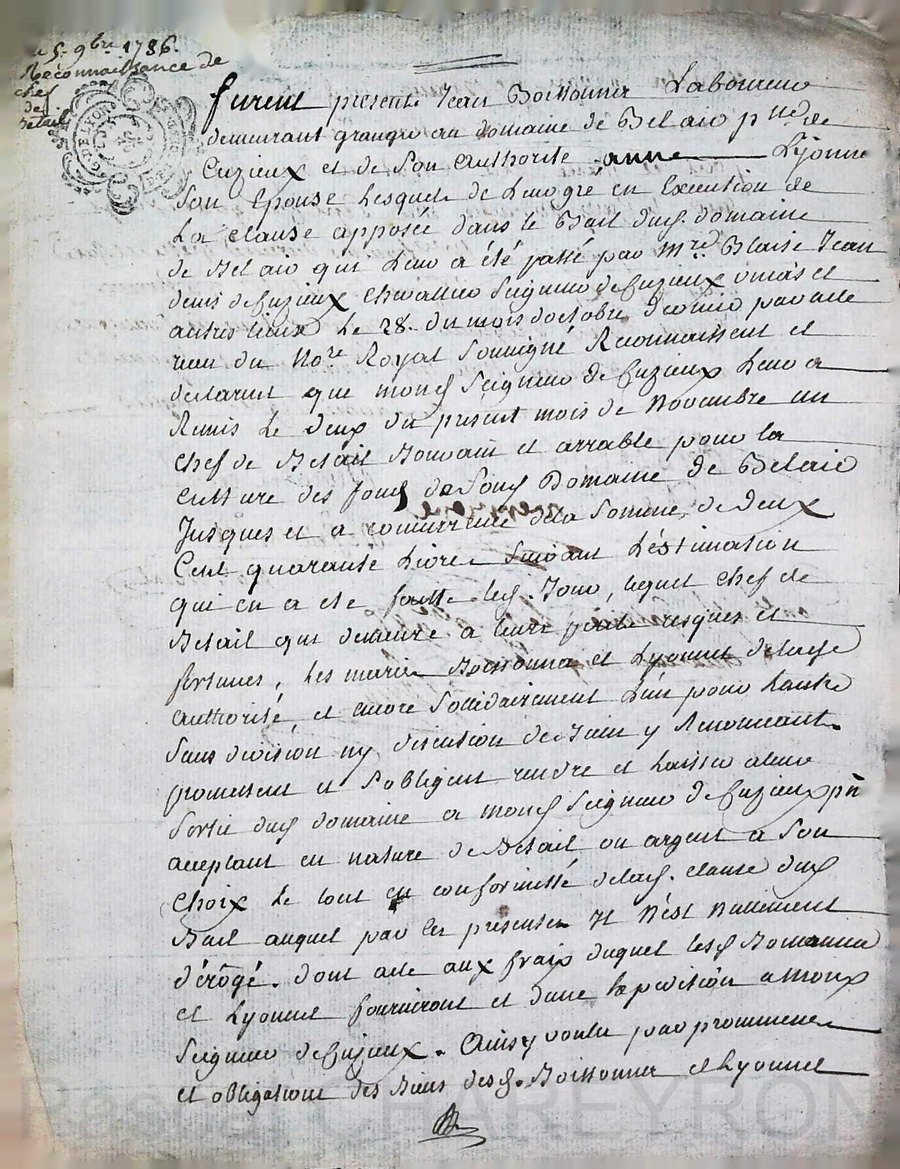 5. 9bre 1786.
Reconnaissance de
chef
de
Betail
G. DE LYON
furent présents Jean Boissonna Laboureur
demeurant granger au domaine de Belair psse de
Cuzieux et de son authorité anne Lyonne
son Epouse Lesquels de Leur gré en Execution de
La clause apposée dans le Bail dud. domaine
de Belair qui Leur a été passé par Mre Blaise Jean
denis de Cuzieux chevallier Seigneur de Cuzieux Unias et
autres Lieux Le 28. du mois doctobre dernier par acte
reçu du Nore Royal Soussigné Reconnaissent et
declarent que mond Seigneur de Cuzieux Leur a
Remis Le deux du présent mois de Novembre un
chef de Bétail Bouvain et arrable pour la
culture des fonds de Sond Domaine de Belair
Jusques et a concurrence de la Somme de deux
Cent quarante Livres Suivant L'éstimation
qui en a été faitte led. Jour, lequel chef de
Bétail qui demeure à leurs périls risques et
fortunes, Les mariés Boissonna et Lyonnet de lad
authorité, et encore Solidairement L'un pour Lautre
Sans division ny discution de Biens y Renonceant
promettent et S'obligent rendre et Laisser a leur
Sortie dud domaine a mond Seigneur de Cuzieux pnt
acceptant en nature de Bétail ou argent à Son
choix Le tout en conformitté de lad. clause dud
Bail auquel par les présentes Il N'est Nullement
dérogé. dont acte aux fraix duquel lesd Boissonna
et Lyonnet fourniront et d'une Expedition a mond
Seigneur de Cuzieux. Ainsy voulu par promesses
et obligations des Biens desd. Boissonna et Lyonnet
CHAREYRON